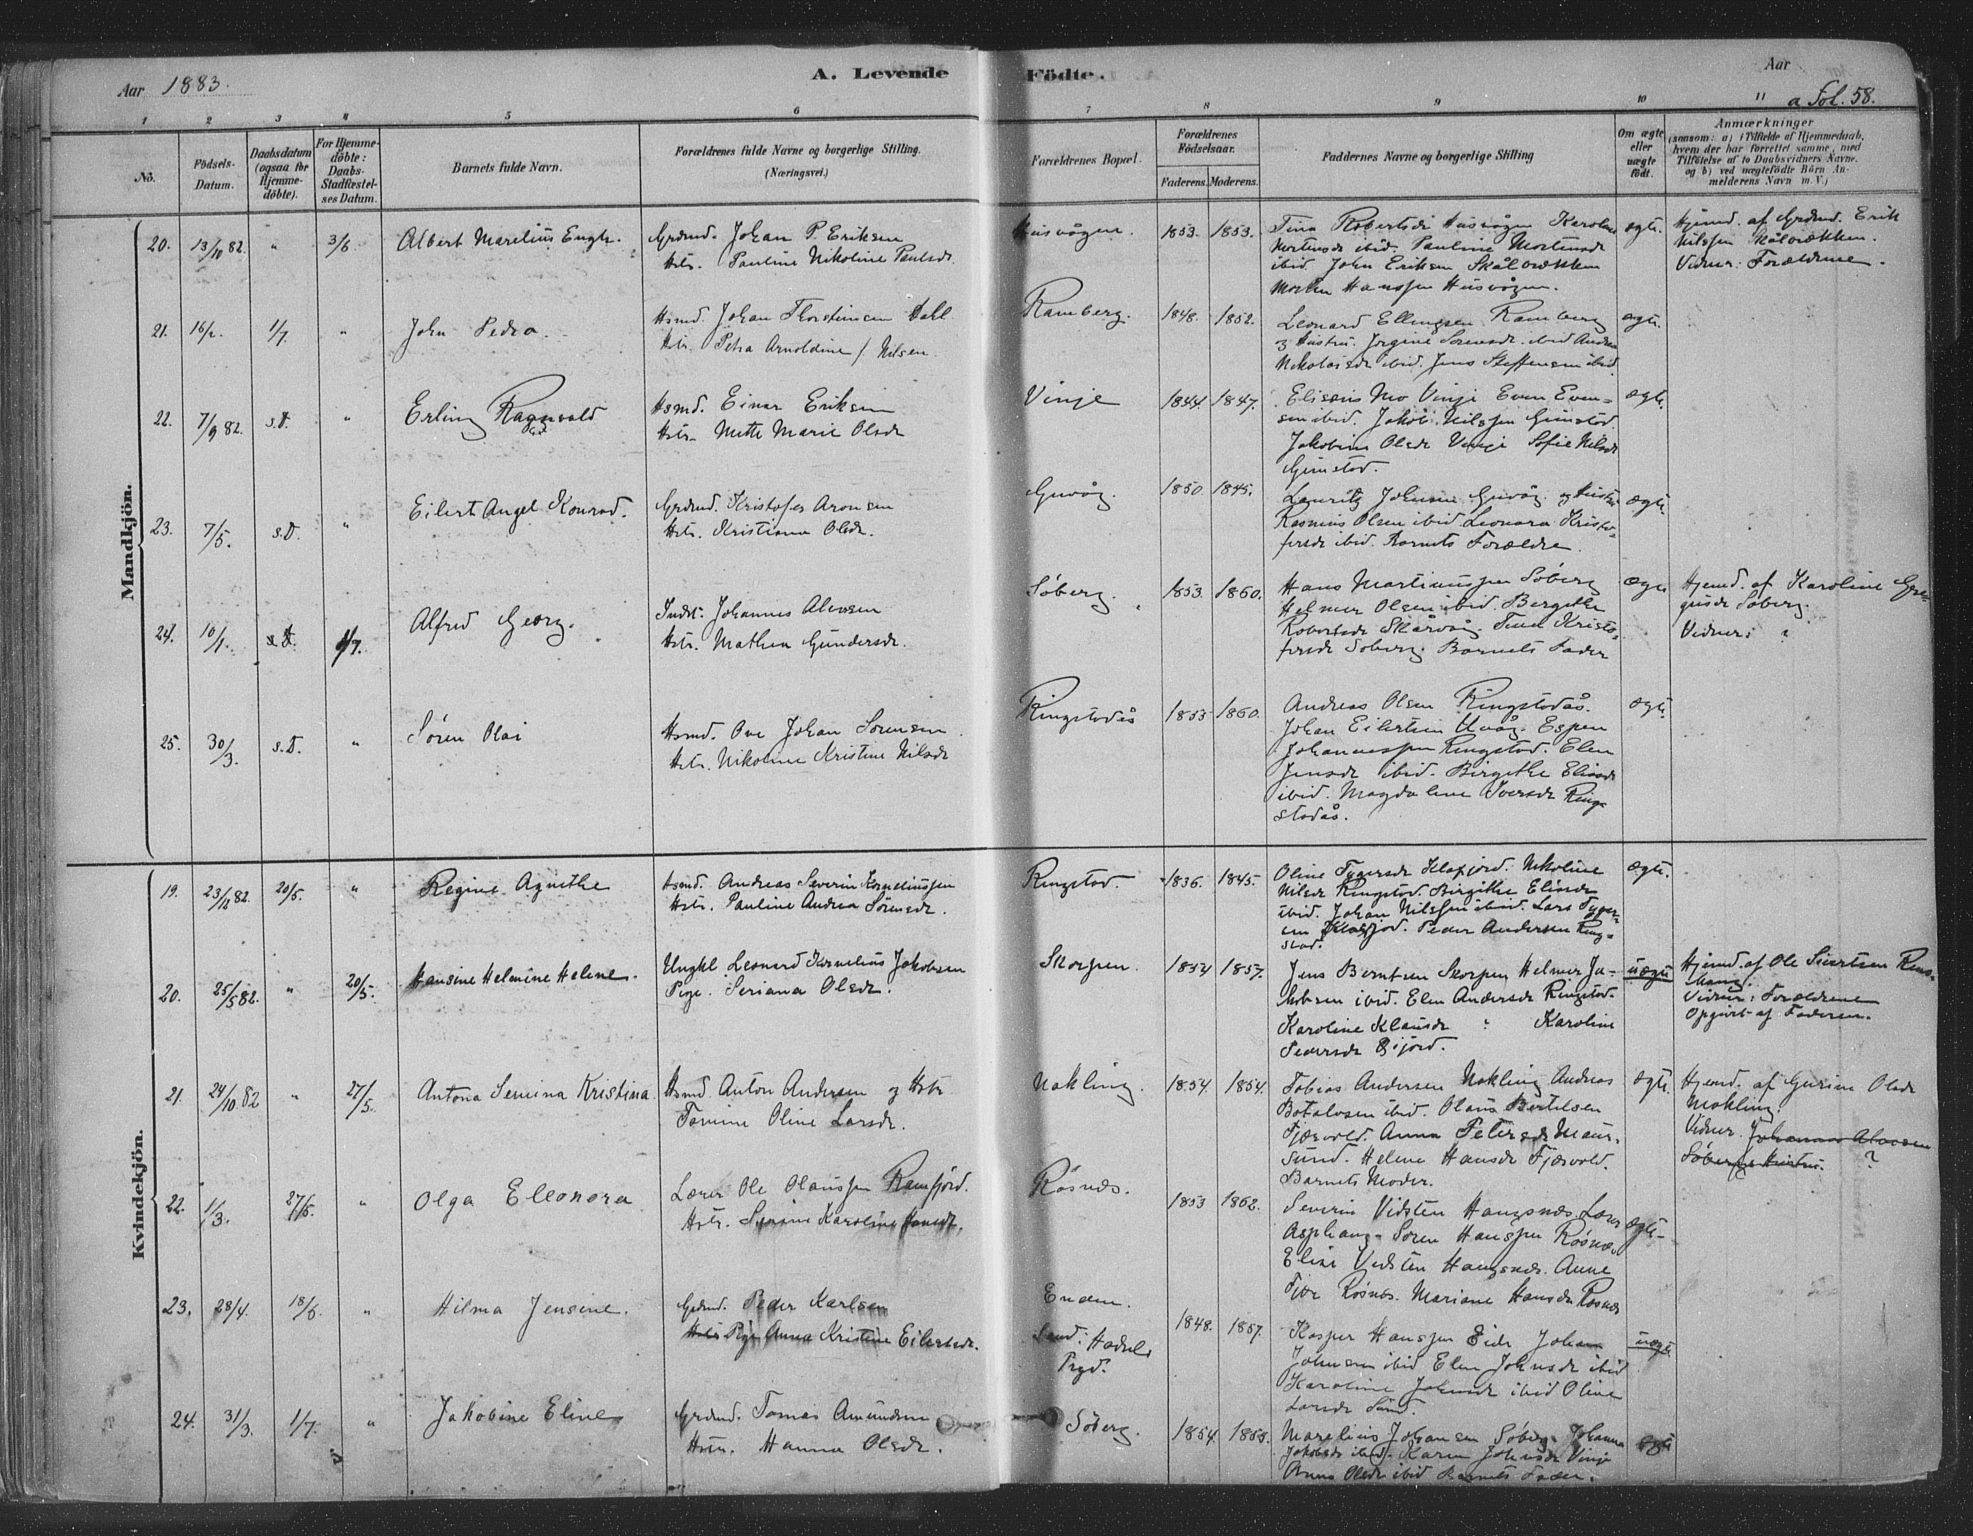 Aar 1883.
A. Levende Födte.
Aar
a Fol. 58.
1 2 3 4 5 6 7 8 9 10 11
No.
Födsels-Datum.
Daabsdatum (ogsaa for Hjemme-döbte).
For Hjemme-döbte: Daabs-Stadfæstel-ses Datum.
Barnets fulde Navn.
Forældrenes fulde Navne og borgerlige Stilling. (Næringsvei.)
Forældrenes Bopæl.
Forældrenes Födselsaar.
Faderens. Moderens.
Faddernes Navne og borgerlige Stilling
Om ægte eller uægte födt.
Anmærkninger
(saasom: a) i Tilfælde af Hjemmedaab, hvem der har forrettet samme, med Tilföielse af to Daabsvidners Navne. og b) ved uægtefödte Börn An-melderens Navn m. V.)
Mandkjön.
20. 13/10 82. " 3/6 Albert Marelius Engh. Grdmd. Johan P. Eriksen
Hstr. Pauline Nikoline Paulsdr.
Husvågen. 1853. 1853. Tina Robertsdr Husvågen Karoline
Mortensdr ibid. Pauline Mortensdr
ibid. John Eriksen Skålbrekken
Morten Hanssen Husvågen.
ægte. Hjemd. af Grdmd. Erik
Nilssen Skålbrekken.
Vidner: Forældrene.
21. 16/2. 1/7 " John Pedra. Hsmd. Johan Thorstensen Dahl
Hstr. Petra Arnoldine / Nilsen.
Ramberg. 1848. 1852. Leonard Ellingsen Ramberg
og Hustru. Jørgine Sørensdr. ibid Andrea
Nikolaisdr ibid. Jens Steffensen ibid.
ægte.
22. 7/9 82. s.D. " Erling Ragnvald Hsmd. Einar Eriksen
Hstr. Mette Marie Olsdr
Vinje 1844. 1847. Eliseus Mo Vinje Even Even-
sen ibid. Jakob Nilssen Grimstad.
Jakobine Olsdr Vinje Sofie Nilsdr
Grimstad.
ægte.
23. 7/5. s.D. " Eilert Angel Konrad. Grdmd. Kristofer Aronsen
Hstr. Kristiana Olsdr.
Guvåg. 1850. 1845. Lauritz Johnsen Guvåg og Hustru
Rasmus Olsen ibid. Leonora Kristo-
fersdr ibid. Barnets Forældre.
ægte.
24. 10/1. s.D. 1/7. Alfred Georg. Indst. Johannes Alovsen
Hstr. Mathea Gundersdr.
Søberg. 1853. 1860. Hans Martinussen Søberg
Helmer Olsen ibid. Bergithe
Robertsdr Skårvåg. Tina Kristo-
fersdr Søberg. Barnets Fader
ægte Hjemd. af Karoline Gre-
gusdr Søberg.
Vidner: ?
25. 30/3. s.D. " Søren Olai Hsmd. Ove Johan Sørensen
Hstr. Nikoline Kristine Nilsdr
Ringstadås 1853 1860. Andreas Olsen Ringstadås.
Johan Eilertsen Uvåg. Espen
Johannessen Ringstad. Elen
Jensdr ibid. Birgithe Eliasdr
ibid. Magdalene Iversdr Ring-
stadås.
ægte.
Kvindekjön.
19. 23/11 82. 20/5. " Regine Agnethe Hsmd. Andreas Severin Korneliussen
Hstr. Pauline Andrea Sørensdr.
Ringstad. 1836. 1845. Oline Tygersdr Klofjord. Nikoline
Nilsdr Ringstad. Birgithe Eliasdr
ibid. Johan Nilssen ibid. Lars Tyger-
sen Klofjord. Peder Andersen Ring-
stad.
ægte.
20. 25/5 82. " 20/5. Hansine Helmine Helene. Ungkl. Leonard Kornelius Jakobsen
Pige. Seriana Olsdr.
Skorpen. 1854 1857. Jens Berntsen Skorpen Helmer Ja-
kobsen ibid. Elen Andersdr Ringstad.
Karoline Klausdr " Karoline
Pedersdr Eijord.
uægte Hjemd. af Ole Sivertsen
Vidner: Forældrene
Opgivet af Faderen.
21. 24/10 82 " 27/5. Antona Semina Kristina. Hsmd Anton Andersen og Hstr.
Tomine Oline Larsdr.
Makling. 1854. 1854. Tobias Andersen Makling Andreas
Botolvsen ibid. Olaus Bertelsen
Fjærvold. Anna Petersdr Maur-
sund. Helene Hansdr Fjærvold.
Barnets Moder.
ægte. Hjemd. af Gurine Olsdr
Makling.
Vidner. Johannes Alovsen
Søberg og Hustru. ?
22. 1/3. 27/5. " Olga Eleonora Lærer Ole Olaussen Ramfjord.
Hstr. Serine Karoline Hansdr.
Røsnæs. 1853 1862. Severin Vidsten Hangsnæs. Lærer
Asphaug. Søren Hanssen Røsnæs
Elise Vidsten Hangsnæs. Anne
Røsnæs. Mariane Hansdr Røsnæs
ægte.
23. 28/4. 18/6. " Hilma Jensine. Grdmd. Peder Karlsen
Pige Anna Kristine Eilertsdr.
Enden.
Sand. Hadsel
Prgd.
1848. 1857. Kasper Hanssen Eide Johan
Johnsen ibid Elen Johnsdr ibid
Karoline Johnsdr ibid Oline
Larsdr Sand.
uægte.
24. 31/3. 1/7. " Jakobine Eline Grdmd. Tomas Amundsen
Hstr. Hanna Olsdr.
Søberg. 1854. 1853. Marelius Johansen Søberg. Johanna
Jakobsdr ibid. Karen Johnsdr Vinje
Anna Olsdr ibid Barnets Fader.
ægte